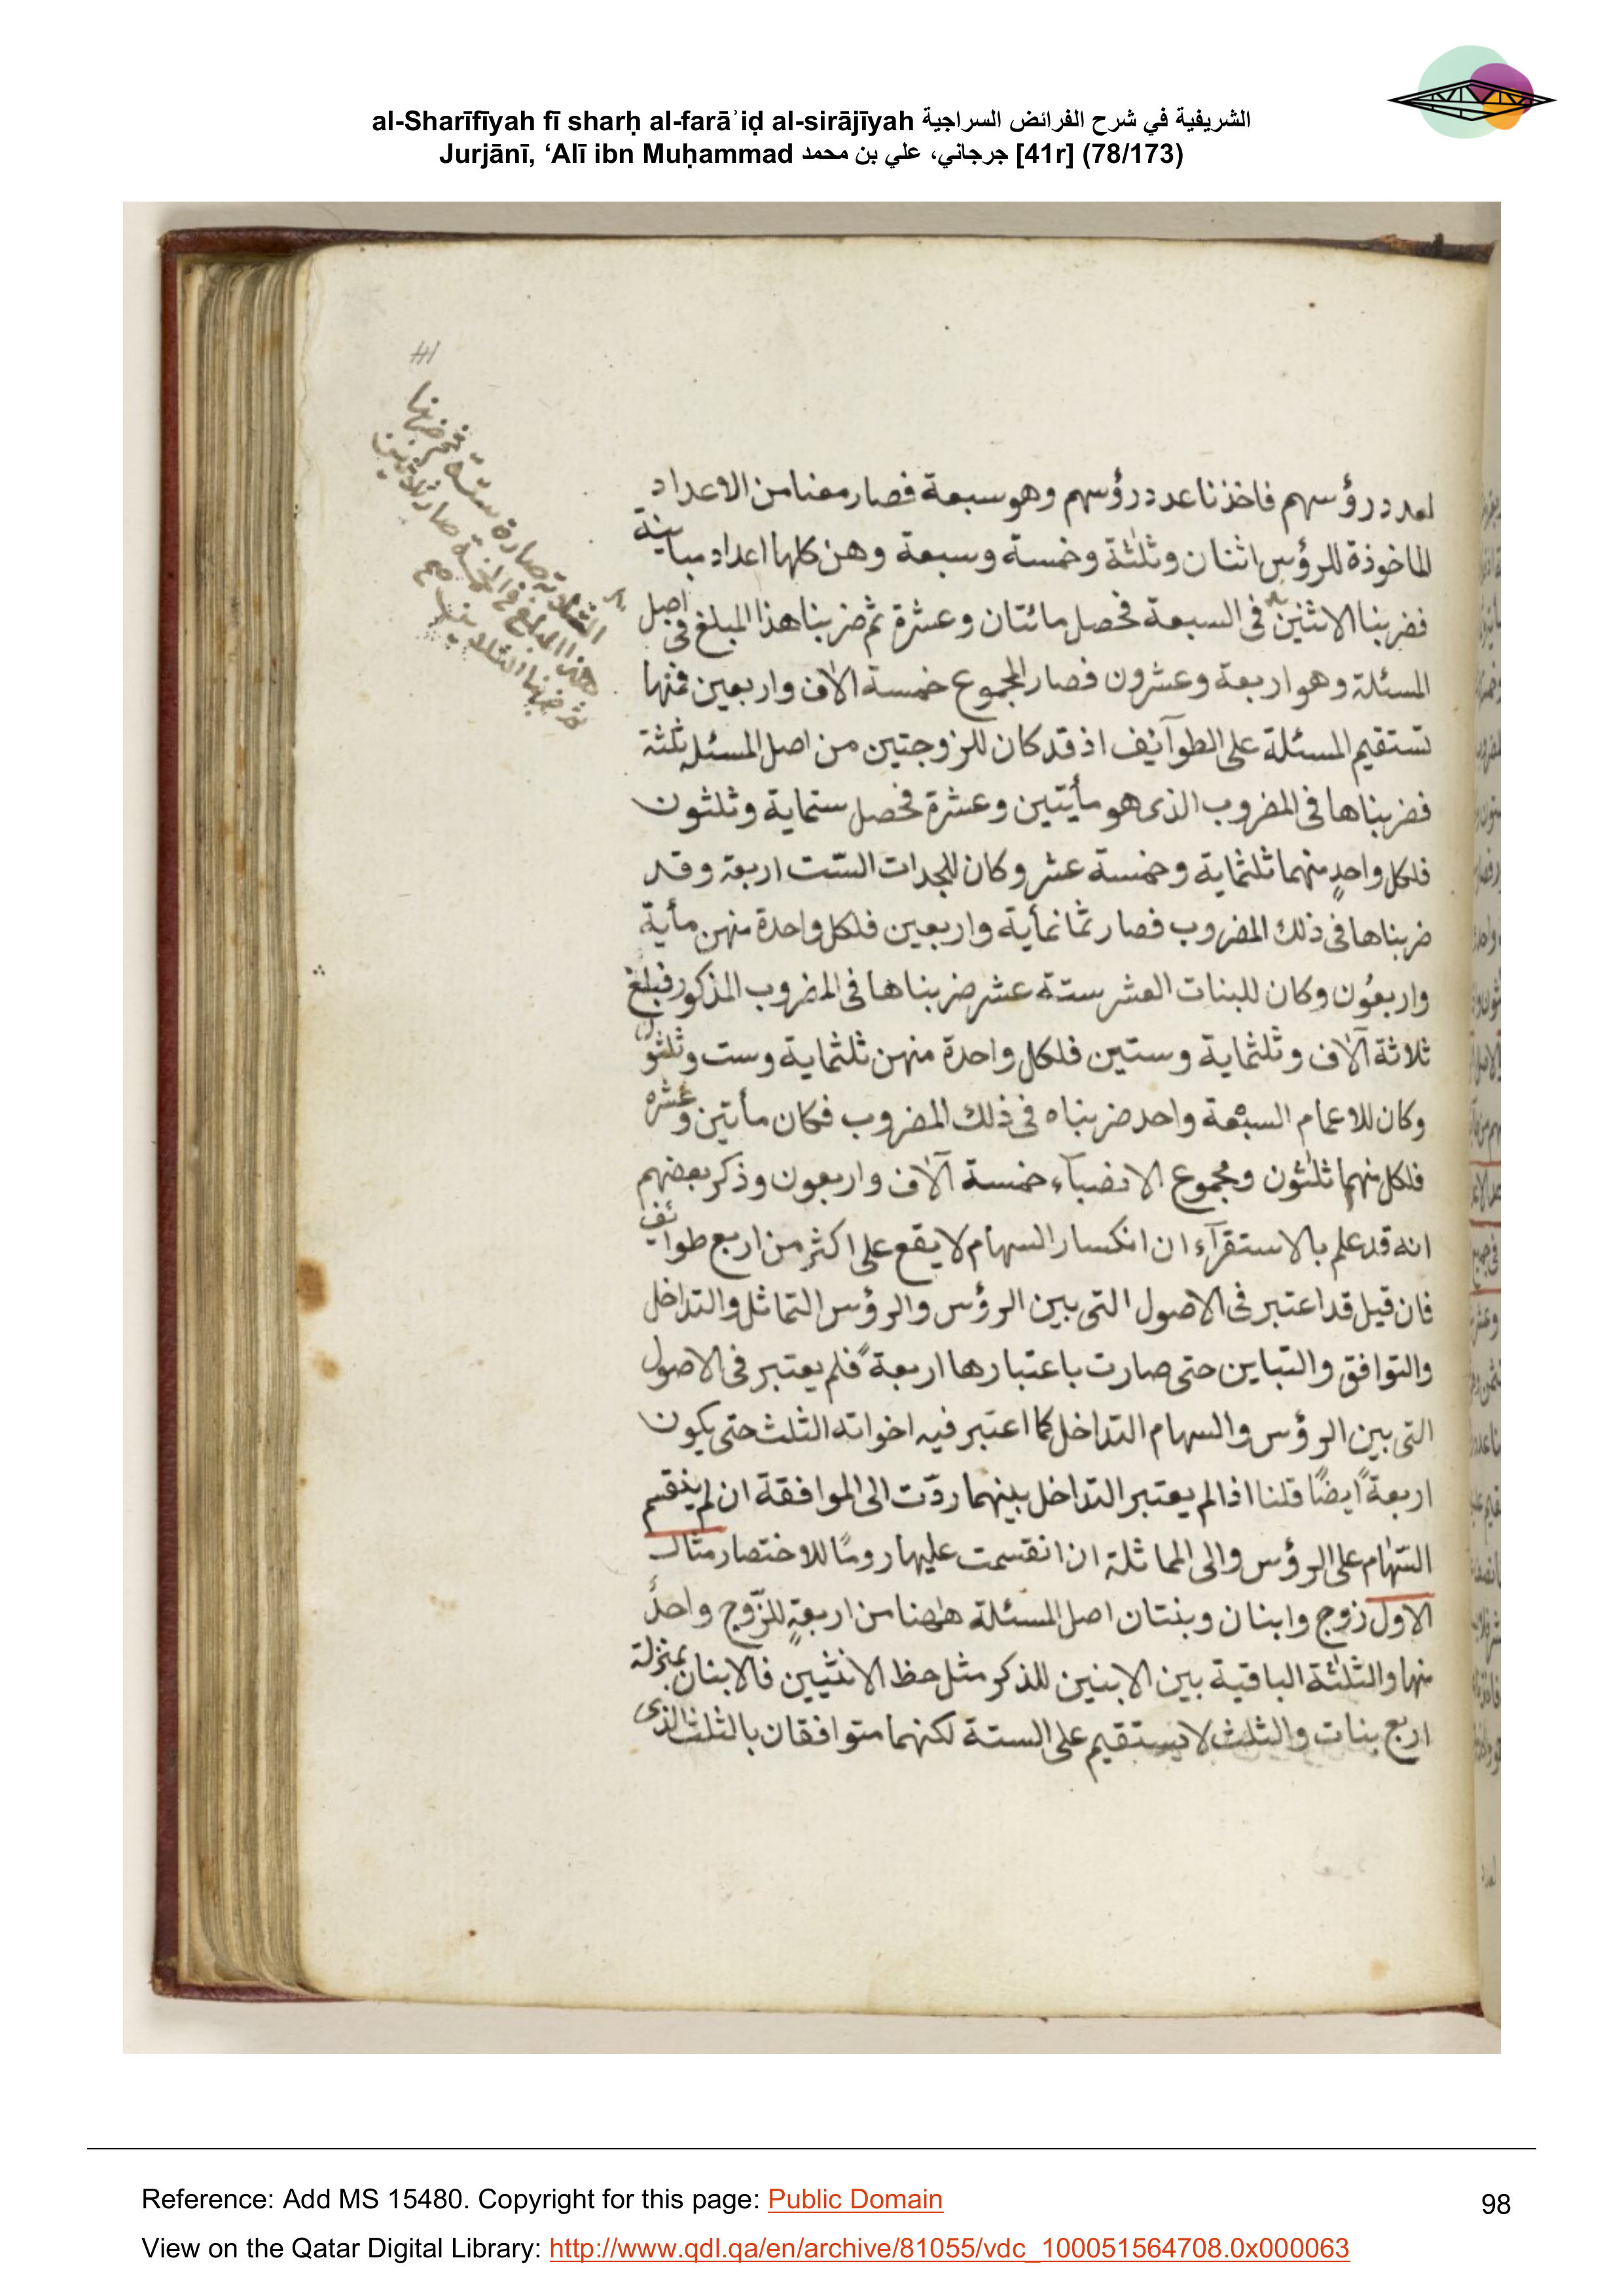 al-Sharīfīyah fī sharḥ al-farāʾiḍ al-sirājīyah الشريفية في شرح الفرائض السراجية
Jurjānī, ‘Alī ibn Muḥammad جرجاني، علي بن محمد [41r] (78/173)
لعدد رؤسهم فاخذنا عدد رؤسهم وهو سبعة فصار معنا من الاعداد
الماخوذة للرؤس اثنان وثلثة وخمسة وسبعة وهن كلها اعداد مباينة
فضربنا الاثنين في السبعة فحصل مائتان وعشرة ثم ضربنا هذا المبلغ في اصل
المسئلة وهو اربعة وعشرون فصار المجموع خمسة الاف واربعين فمنها
تستقيم المسئلة على الطوآئف اذ قد كان للزوجتين من اصل المسئلة ثلثة
فضربناها في المضروب الذى هو مأيتين وعشرة فحصل ستماية وثلثون
فلكل واحدٍ منهما ثلثماية وخمسة عشر وكان للجدات الستّ اربعة وقد
ضربناها في ذلك المضروب فصار ثمانمأية واربعين فلكل واحدة منهن مأية
واربعُون وكان للبنات العشر ستة عشر ضربناها في المضروب المذكور فبلغ
ثلاثة آلاف وثلثماية وستين فلكل واحدة منهن ثلثماية وست وثلثون
وكان للاعمام السبعة واحد ضربناه في ذلك المضروب فكان مأتين وعشره
فلكل منهما ثلثون ومجموع الانضبآء خمسة آلاف واربعون وذكر بعضهم
انه قد علم بالاستقرآء ان انكسار السهام لا يقع على اكثر من اربع طوائف
فان قيل قد اعتبر في الاصول التى بين الرؤس والرؤس التماثل والتداخل
والتوافق والتباين حتى صارت باعتبارها اربعة فلم يعتبر في الاصول
التى بين الرؤس والسهام التداخل كما اعتبر فيه اخواته الثلث حتى يكون
اربعةً ايضًا قلنا اذا لم يعتبر التداخل بينهما ردّت الى الموافقة ان لم ينقسم
السّهام على الرؤس والى المماثلة ان انقسمت عليها رومًا للاختصار مثال
الاول زوج وابنان وبنتان اصل المسئلة هٰهنا من اربعةٍ للزّوج واحدٌ
منها والثلثة الباقية بين الابنين للذكر مثل حظ الانثيين فالابنان بمنزلة
اربع بنات والثلث لا يستقيم على الستة لكنهما متوافقان بالثلث الذى
الثلاثة صارة ستة فضربنا
هذا المبلغ في الخمسة صار ثلاثين
ثم ضربنا الثلاثين صح
Reference: Add MS 15480. Copyright for this page: Public Domain
98
View on the Qatar Digital Library: http://www.qdl.qa/en/archive/81055/vdc_100051564708.0x000063